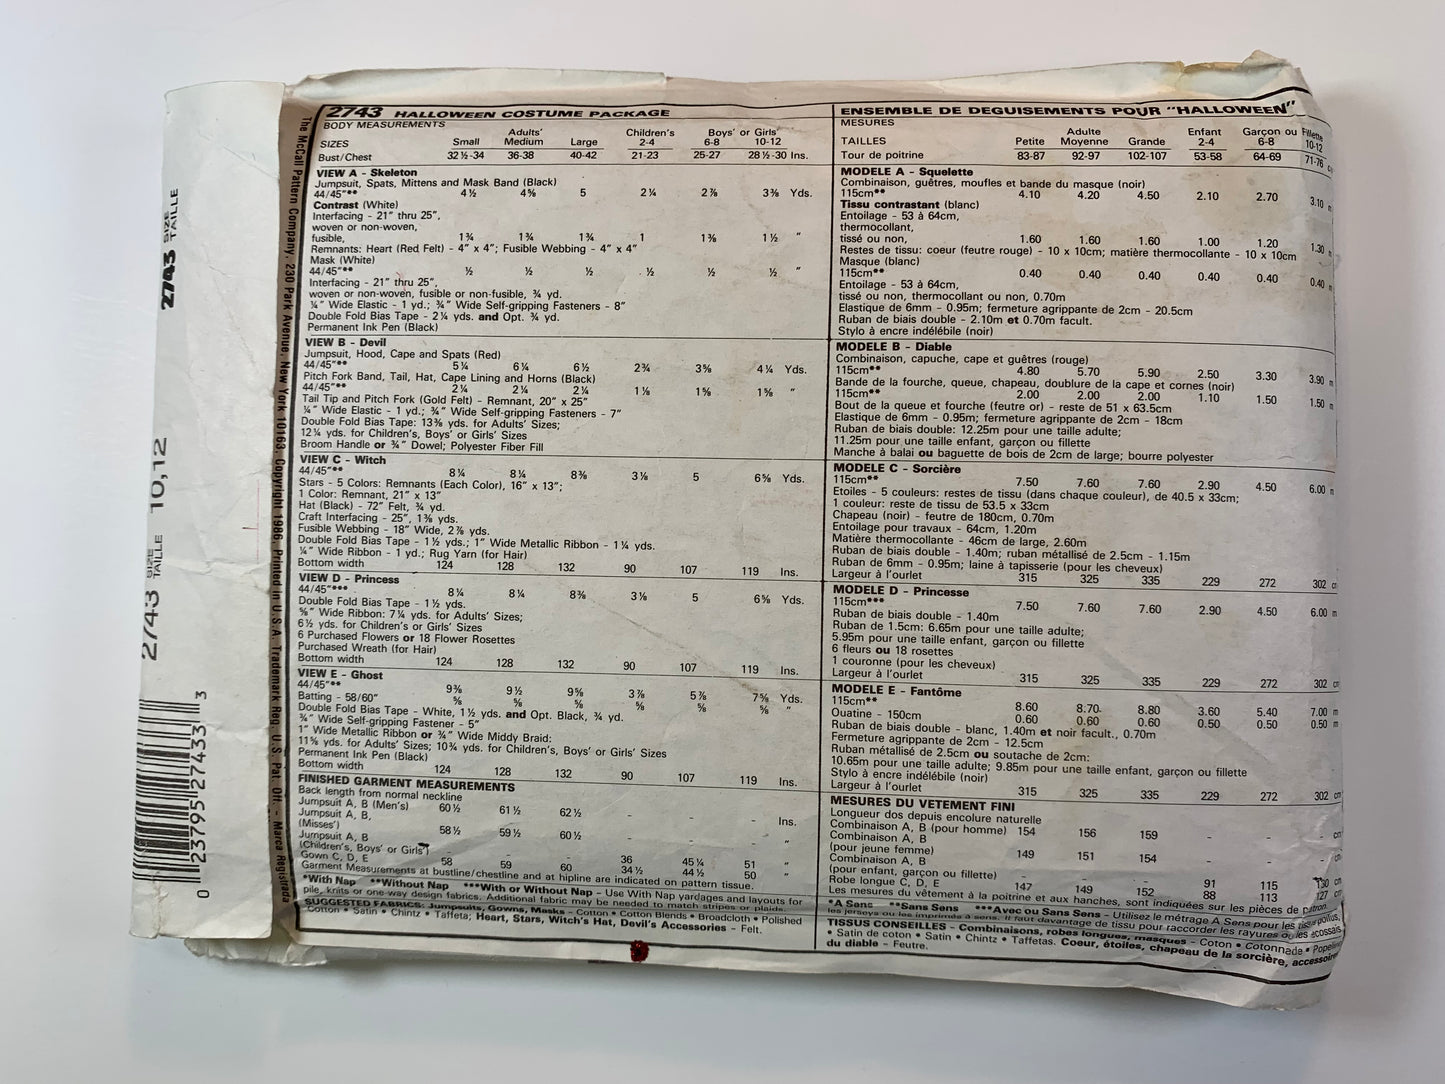 2743 HALLOWEEN COSTUME PACKAGE
BODY MEASUREMENTS
Adults' Children's Boys' or Girls'
SIZES Small Medium Large 2-4 6-8 10-12
Bust/Chest 32½-34 36-38 40-42 21-23 25-27 28½-30 Ins.
VIEW A - Skeleton
Jumpsuit, Spats, Mittens and Mask Band (Black)
44/45"** 4½ 4⅝ 5 2¼ 2⅞ 3⅜ Yds.
Contrast (White)
Interfacing - 21" thru 25",
woven or non-woven,
fusible, 1¾ 1¾ 1¾ 1 1⅜ 1½ "
Remnants: Heart (Red Felt) - 4" x 4"; Fusible Webbing - 4" x 4"
Mask (White)
44/45"** ½ ½ ½ ½ ½ ½ "
Interfacing - 21" thru 25",
woven or non-woven, fusible or non-fusible, ¾ yd.
¼" Wide Elastic - 1 yd.; ¾" Wide Self-gripping Fasteners - 8"
Double Fold Bias Tape - 2¼ yds. and Opt. ¾ yd.
Permanent Ink Pen (Black)
VIEW B - Devil
Jumpsuit, Hood, Cape and Spats (Red)
44/45"** 5¼ 6¼ 6½ 2¾ 3⅝ 4¼ Yds.
Pitch Fork Band, Tail, Hat, Cape Lining and Horns (Black)
44/45"** 2¼ 2¼ 2¼ 1⅛ 1⅝ 1⅝ "
Tail Tip and Pitch Fork (Gold Felt) - Remnant, 20" x 25"
¼" Wide Elastic - 1 yd.; ¾" Wide Self-gripping Fasteners - 7"
Double Fold Bias Tape: 13⅜ yds. for Adults' Sizes;
12¼ yds. for Children's, Boys' or Girls' Sizes
Broom Handle or ¾" Dowel; Polyester Fiber Fill
VIEW C - Witch
44/45"** 8¼ 8¼ 8⅜ 3⅛ 5 6⅝ Yds.
Stars - 5 Colors: Remnants (Each Color), 16" x 13";
1 Color: Remnant, 21" x 13"
Hat (Black) - 72" Felt, ¾ yd.
Craft Interfacing - 25", 1⅜ yds.
Fusible Webbing - 18" Wide, 2⅞ yds.
Double Fold Bias Tape - 1½ yds.; 1" Wide Metallic Ribbon - 1¼ yds.
¼" Wide Ribbon - 1 yd.; Rug Yarn (for Hair)
Bottom width 124 128 132 90 107 119 Ins.
VIEW D - Princess
44/45"*** 8¼ 8¼ 8⅜ 3⅛ 5 6⅝ Yds.
Double Fold Bias Tape - 1½ yds.
⅝" Wide Ribbon: 7¼ yds. for Adults' Sizes;
6½ yds. for Children's or Girls' Sizes
6 Purchased Flowers or 18 Flower Rosettes
Purchased Wreath (for Hair)
Bottom width 124 128 132 90 107 119 Ins.
VIEW E - Ghost
44/45"** 9⅜ 9½ 9⅝ 3⅞ 5⅞ 7⅝ Yds.
Batting - 58/60" ⅝ ⅝ ⅝ ⅝ ⅝ ⅝ "
Double Fold Bias Tape - White, 1½ yds. and Opt. Black, ¾ yd.
¾" Wide Self-gripping Fastener - 5"
1" Wide Metallic Ribbon or ¾" Wide Middy Braid:
11⅝ yds. for Adults' Sizes; 10¾ yds. for Children's, Boys' or Girls' Sizes
Permanent Ink Pen (Black)
Bottom width 124 128 132 90 107 119 Ins.
FINISHED GARMENT MEASUREMENTS
Back length from normal neckline
Jumpsuit A, B (Men's) 60½ 61½ 62½ - - - Ins.
Jumpsuit A, B,
(Misses') 58½ 59½ 60½ - - - "
Jumpsuit A, B
(Children's, Boys' or Girls') - - - 36 45¼ 51 "
Gown C, D, E 58 59 60 34½ 44½ 50 "
Garment Measurements at bustline/chestline and at hipline are indicated on pattern tissue.
*With Nap **Without Nap ***With or Without Nap - Use With Nap yardages and layouts for
pile, knits or one-way design fabrics. Additional fabric may be needed to match stripes or plaids.
SUGGESTED FABRICS: Jumpsuits, Gowns, Masks - Cotton • Cotton Blends • Broadcloth • Polished
Cotton • Satin • Chintz • Taffeta; Heart, Stars, Witch's Hat, Devil's Accessories - Felt.
ENSEMBLE DE DEGUISEMENTS POUR "HALLOWEEN"
MESURES
Adulte Enfant Garçon ou Fillette
TAILLES Petite Moyenne Grande 2-4 6-8 10-12
Tour de poitrine 83-87 92-97 102-107 53-58 64-69 71-76
MODELE A - Squelette
Combinaison, guêtres, moufles et bande du masque (noir)
115cm** 4.10 4.20 4.50 2.10 2.70 3.10 m
Tissu contrastant (blanc)
Entoilage - 53 à 64cm,
thermocollant,
tissé ou non, 1.60 1.60 1.60 1.00 1.20 1.30 m
Restes de tissu: coeur (feutre rouge) - 10 x 10cm; matière thermocollante - 10 x 10cm
Masque (blanc)
115cm** 0.40 0.40 0.40 0.40 0.40 0.40 m
Entoilage - 53 à 64cm,
tissé ou non, thermocollant ou non, 0.70m
Elastique de 6mm - 0.95m; fermeture agrippante de 2cm - 20.5cm
Ruban de biais double - 2.10m et 0.70m facult.
Stylo à encre indélébile (noir)
MODELE B - Diable
Combinaison, capuche, cape et guêtres (rouge)
115cm** 4.80 5.70 5.90 2.50 3.30 3.90 m
Bande de la fourche, queue, chapeau, doublure de la cape et cornes (noir)
115cm** 2.00 2.00 2.00 1.10 1.50 1.50 m
Bout de la queue et fourche (feutre or) - reste de 51 x 63.5cm
Elastique de 6mm - 0.95m; fermeture agrippante de 2cm - 18cm
Ruban de biais double: 12.25m pour une taille adulte;
11.25m pour une taille enfant, garçon ou fillette
Manche à balai ou baguette de bois de 2cm de large; bourre polyester
MODELE C - Sorcière
115cm** 7.50 7.60 7.60 2.90 4.50 6.00 m
Etoiles - 5 couleurs: restes de tissu (dans chaque couleur), de 40.5 x 33cm;
1 couleur: reste de tissu de 53.5 x 33cm
Chapeau (noir) - feutre de 180cm, 0.70m
Entoilage pour travaux - 64cm, 1.20m
Matière thermocollante - 46cm de large, 2.60m
Ruban de biais double - 1.40m; ruban métallisé de 2.5cm - 1.15m
Ruban de 6mm - 0.95m; laine à tapisserie (pour les cheveux)
Largeur à l'ourlet 315 325 335 229 272 302 cm
MODELE D - Princesse
115cm*** 7.50 7.60 7.60 2.90 4.50 6.00 m
Ruban de biais double - 1.40m
Ruban de 1.5cm: 6.65m pour une taille adulte;
5.95m pour une taille enfant, garçon ou fillette
6 fleurs ou 18 rosettes
1 couronne (pour les cheveux)
Largeur à l'ourlet 315 325 335 229 272 302 cm
MODELE E - Fantôme
115cm** 8.60 8.70 8.80 3.60 5.40 7.00 m
Ouatine - 150cm 0.60 0.60 0.60 0.50 0.50 0.50 m
Ruban de biais double - blanc, 1.40m et noir facult., 0.70m
Fermeture agrippante de 2cm - 12.5cm
Ruban métallisé de 2.5cm ou soutache de 2cm:
10.65m pour une taille adulte; 9.85m pour une taille enfant, garçon ou fillette
Stylo à encre indélébile (noir)
Largeur à l'ourlet 315 325 335 229 272 302 cm
MESURES DU VETEMENT FINI
Longueur dos depuis encolure naturelle
Combinaison A, B (pour homme) 154 156 159 - - - cm
Combinaison A, B
(pour jeune femme) 149 151 154 - - - cm
Combinaison A, B
(pour enfant, garçon ou fillette) - - - 91 115 130 cm
Robe longue C, D, E 147 149 152 88 113 127 cm
Les mesures du vêtement à la poitrine et aux hanches, sont indiquées sur les pièces de patron.
*A Sens **Sans Sens ***Avec ou Sans Sens - Utilisez le métrage A Sens pour les tissus poilus,
les jerseys ou les imprimés à sens. Il faut davantage de tissu pour raccorder les rayures ou les écossais.
TISSUS CONSEILLES - Combinaisons, robes longues, masques - Coton • Cotonnade • Popeline
• Satin de coton • Satin • Chintz • Taffetas. Coeur, étoiles, chapeau de la sorcière, accessoires
du diable - Feutre.
The McCall Pattern Company, 230 Park Avenue, New York 10163. Copyright 1986. Printed in U.S.A. Trademark Reg. U.S. Pat. Off. - Marca Registrada
2743 SIZE
TAILLE
2743 SIZE
TAILLE 10,12
0 23795 27433 3